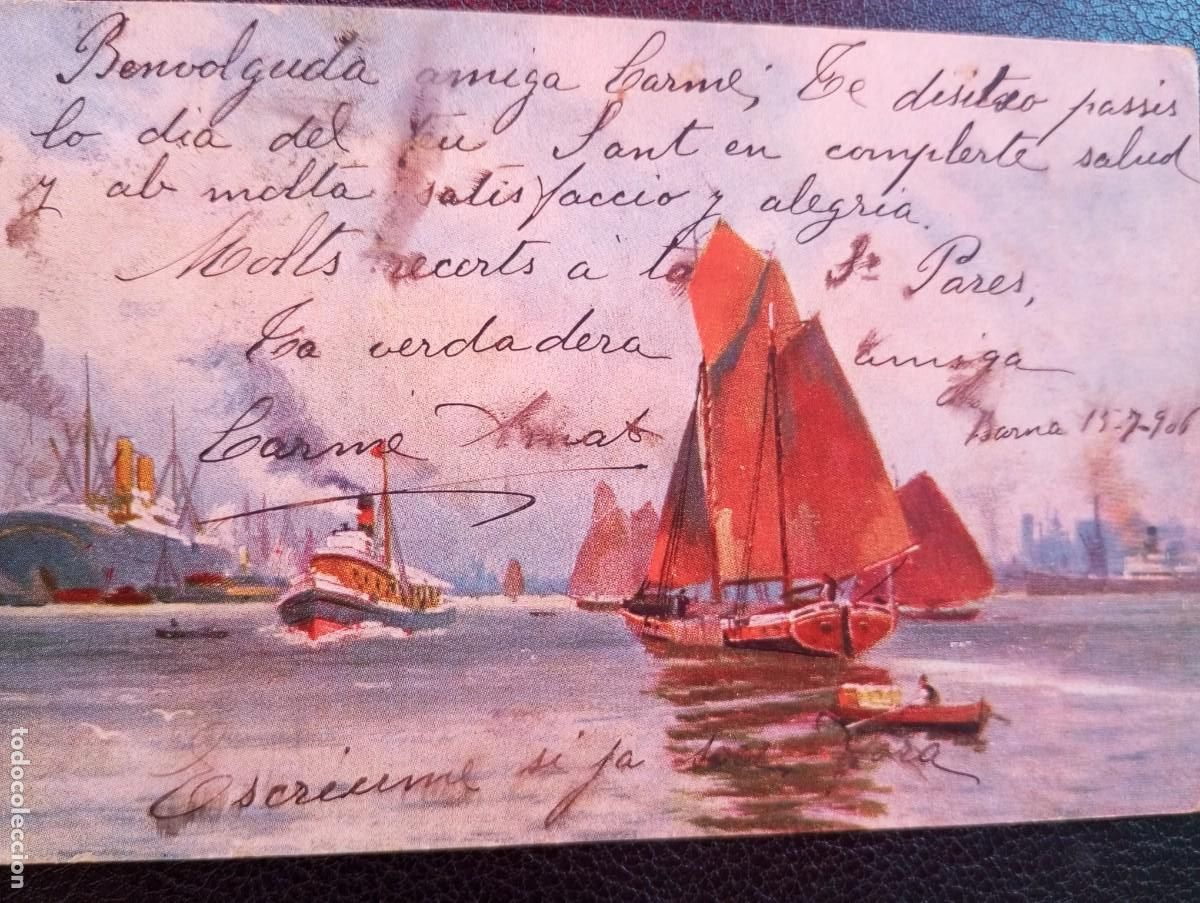 Benvolguda amiga Carme; Te disitxo passis
lo dia del tu Sant en complerte salud
y ab molta satisfaccio y alegria.
Molts recorts a ta Sr Pares,
Ta verdadera amiga
Carme Amat
Barna 15-7-906
Escriume si ja fora
todocoleccion